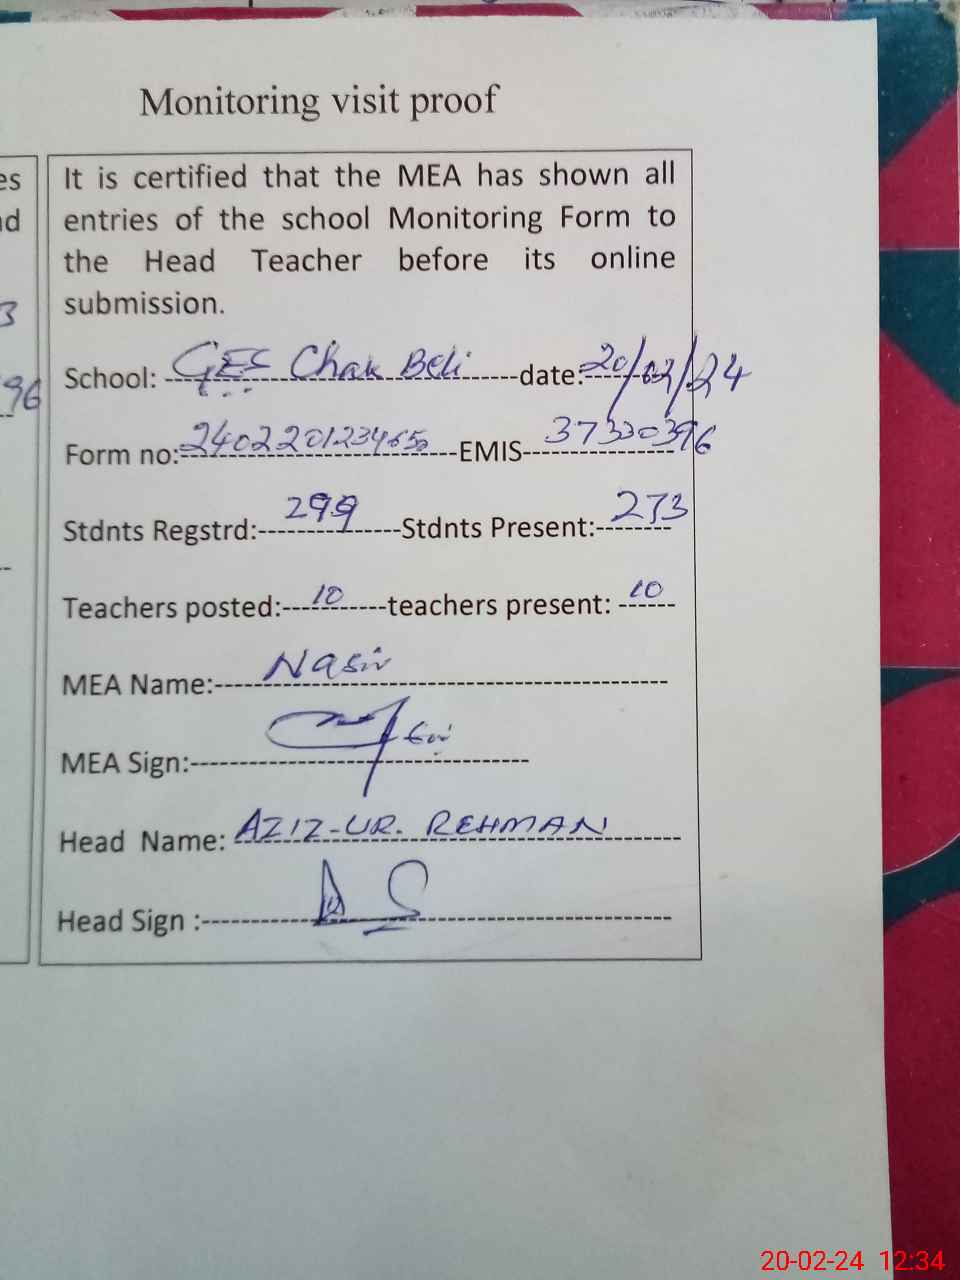 Monitoring visit proof
It is certified that the MEA has shown all
entries of the school Monitoring Form to
the Head Teacher before its online
submission.
School: GES Chak Beli date: 20/02/24
Form no: EMIS 37330396
Stdnts Regstrd: 299 Stdnts Present: 273
Teachers posted: 10 teachers present: 10
MEA Name: Nasir
MEA Sign:
Head Name: AZIZ-UR. REHMAN
Head Sign :
es
nd
3
96
20-02-24 12:34